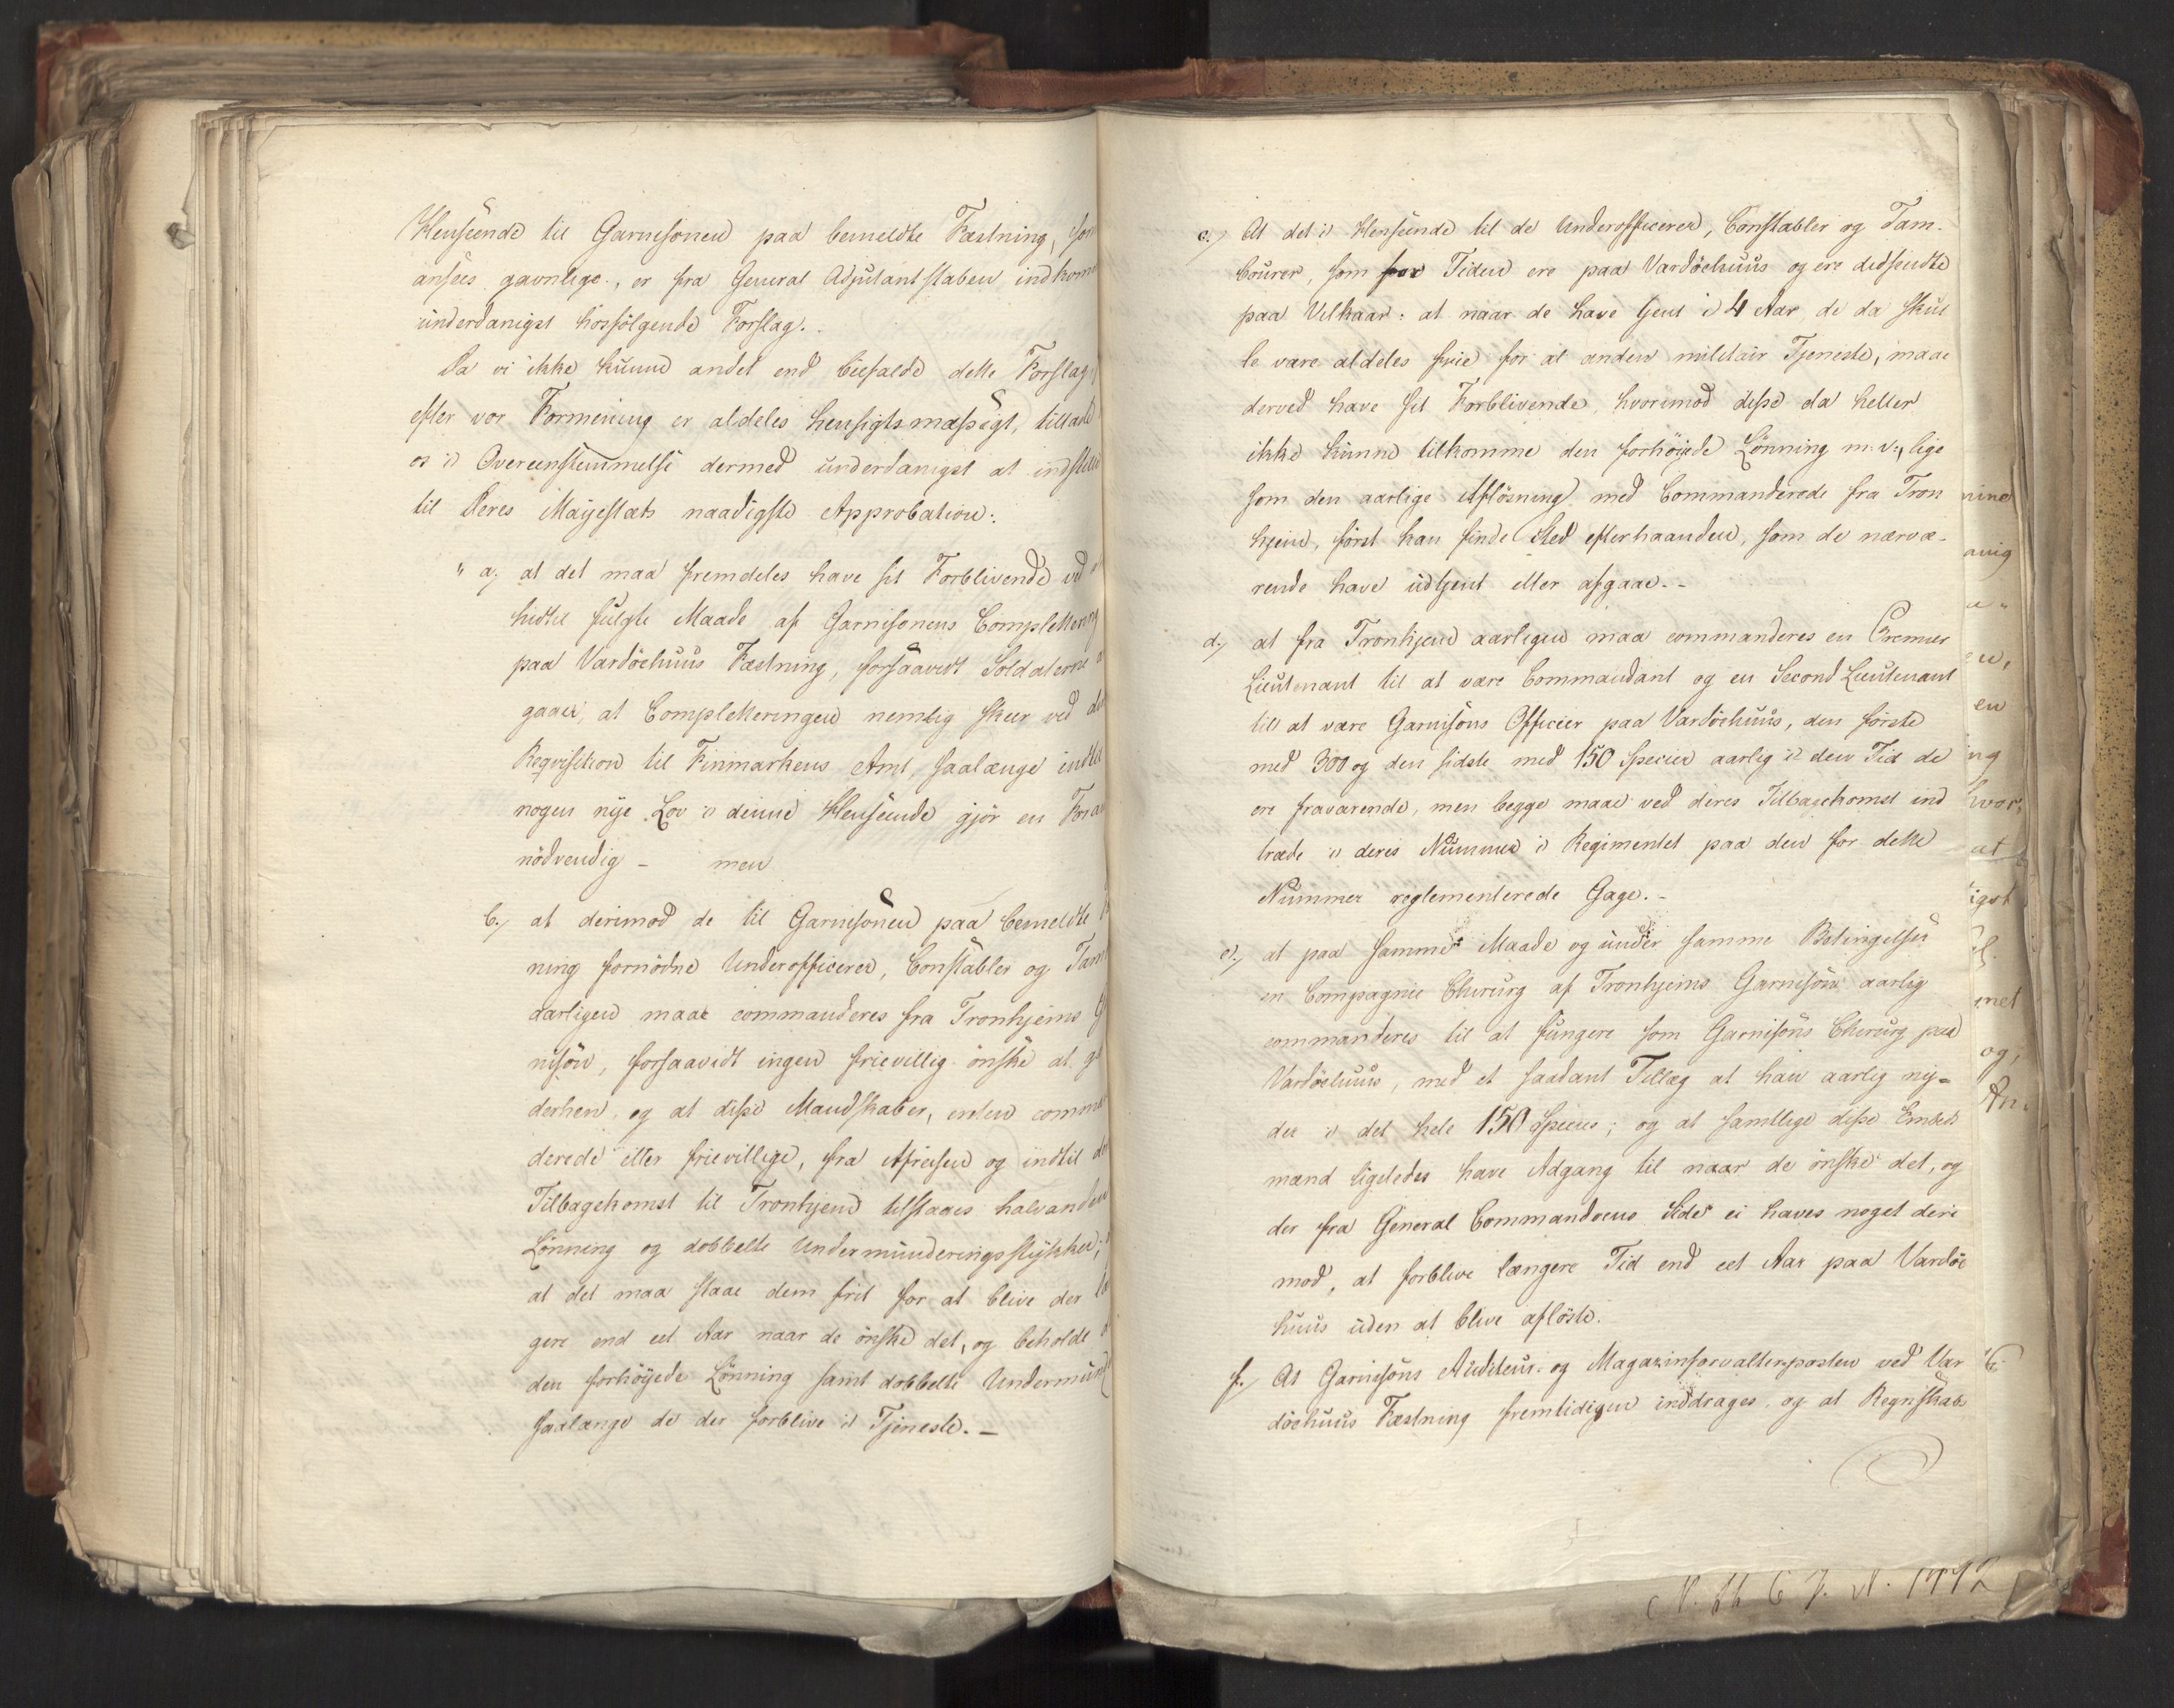 Henseende til Garnisonen paa bemeldte Fæstning, som
ansees gavnlige, er fra General Adjutantstaben indkom
underdanigst hosfølgende Forslag.
Da vi ikke kunne andet end bifalde dette Forslag
efter vor Formening er aldeles hensigtsmæssigt, tillade
os i Overeenstemmelse dermed underdanigst at indstille
til Deres Majestæts naadigste Approbation:
" a, at det maa fremdeles have sit Forblivende ved
hidtil fulgte Maade af Garnisonens Complettering
paa Vardöehuus Fæstning, forsaavidt Soldaterne
gaaer, at Completteringen nemlig skeer ved
Reqvisition til Finmarkens Amt, saalænge indtil
nogen nye Lov i denne Henseende gjör en
nödvendig - men
b, at derimod de til Garnisonen paa bemeldte
ning fornödne Underofficerer, Constabler og Tam
aarligen maae commanderes fra Tronhjems
nison, forsaavidt ingen frievillig önske at
derhen, og at disse Mandskaber, enten comman
derede eller frievillige, fra Afreisen og indtil
Tilbagekomst til Tronhjem tilstaaes halvanden
Lönning og dobbelte Undermunderingsstykker,
at det maa staae dem frit for at blive der
gere end eet Aar naar de önske det, og beholde
den forhöyede Lönning samt dobbelte Undermund
saalænge de der forblive i Tjeneste. -
c, At det i Henseende til de Underofficerer, Constabler og Tam-
bourer, som for Tiden ere paa Vardöehuus og ere didsendte
paa Vilkaar: at naar de have tjent i 4 Aar de da skul
le være aldeles frie for al anden militair Tjeneste, maae
derved have sit Forblivende, hvorimod disse da heller
ikke kunne tilkomme den forhöyede Lönning m: v:, lige
som den aarlige Aflösning med Commanderede fra Tron
hjem, först kan finde Sted efterhaanden, som de nærvæ-
rende have udtjent eller afgaae. -
d, at fra Tronhjem aarligen maa commanderes en Premier
Lieutenant til at være Commandant og en Second Lieutenant
till at være Garnisons Officier paa Vardöehuus, den förste
med 300 og den sidste med 150 Species aarlig i den Tid de
ere fraværende, men begge maae ved deres Tilbagekomst ind
træde i deres Nummer i Regimentet paa den for dette
Nummer reglementerede Gage. -
e, at paa samme Maade og under samme Betingelser
en Compagnie Chirurg af Tronhjems Garnison aarlig
commanderes til at fungere som Garnisons Chirurg paa
Vardöehuus, med et saadant Tillæg at han aarlig ny-
der i det hele 150 Species; og at samtlige disse Embeds
mænd ligeledes have Adgang til naar de önske det, og
der fra General Commandoens Side ei haves noget deri
mod, at forblive længere Tid end eet Aar paa Vardöe
huus uden at blive aflöste.
f, At Garnisons Auditeur- og Magazinforvalterposten ved Var
döehuus Fæstning fremtidigen inddrages, og at Regnskabs